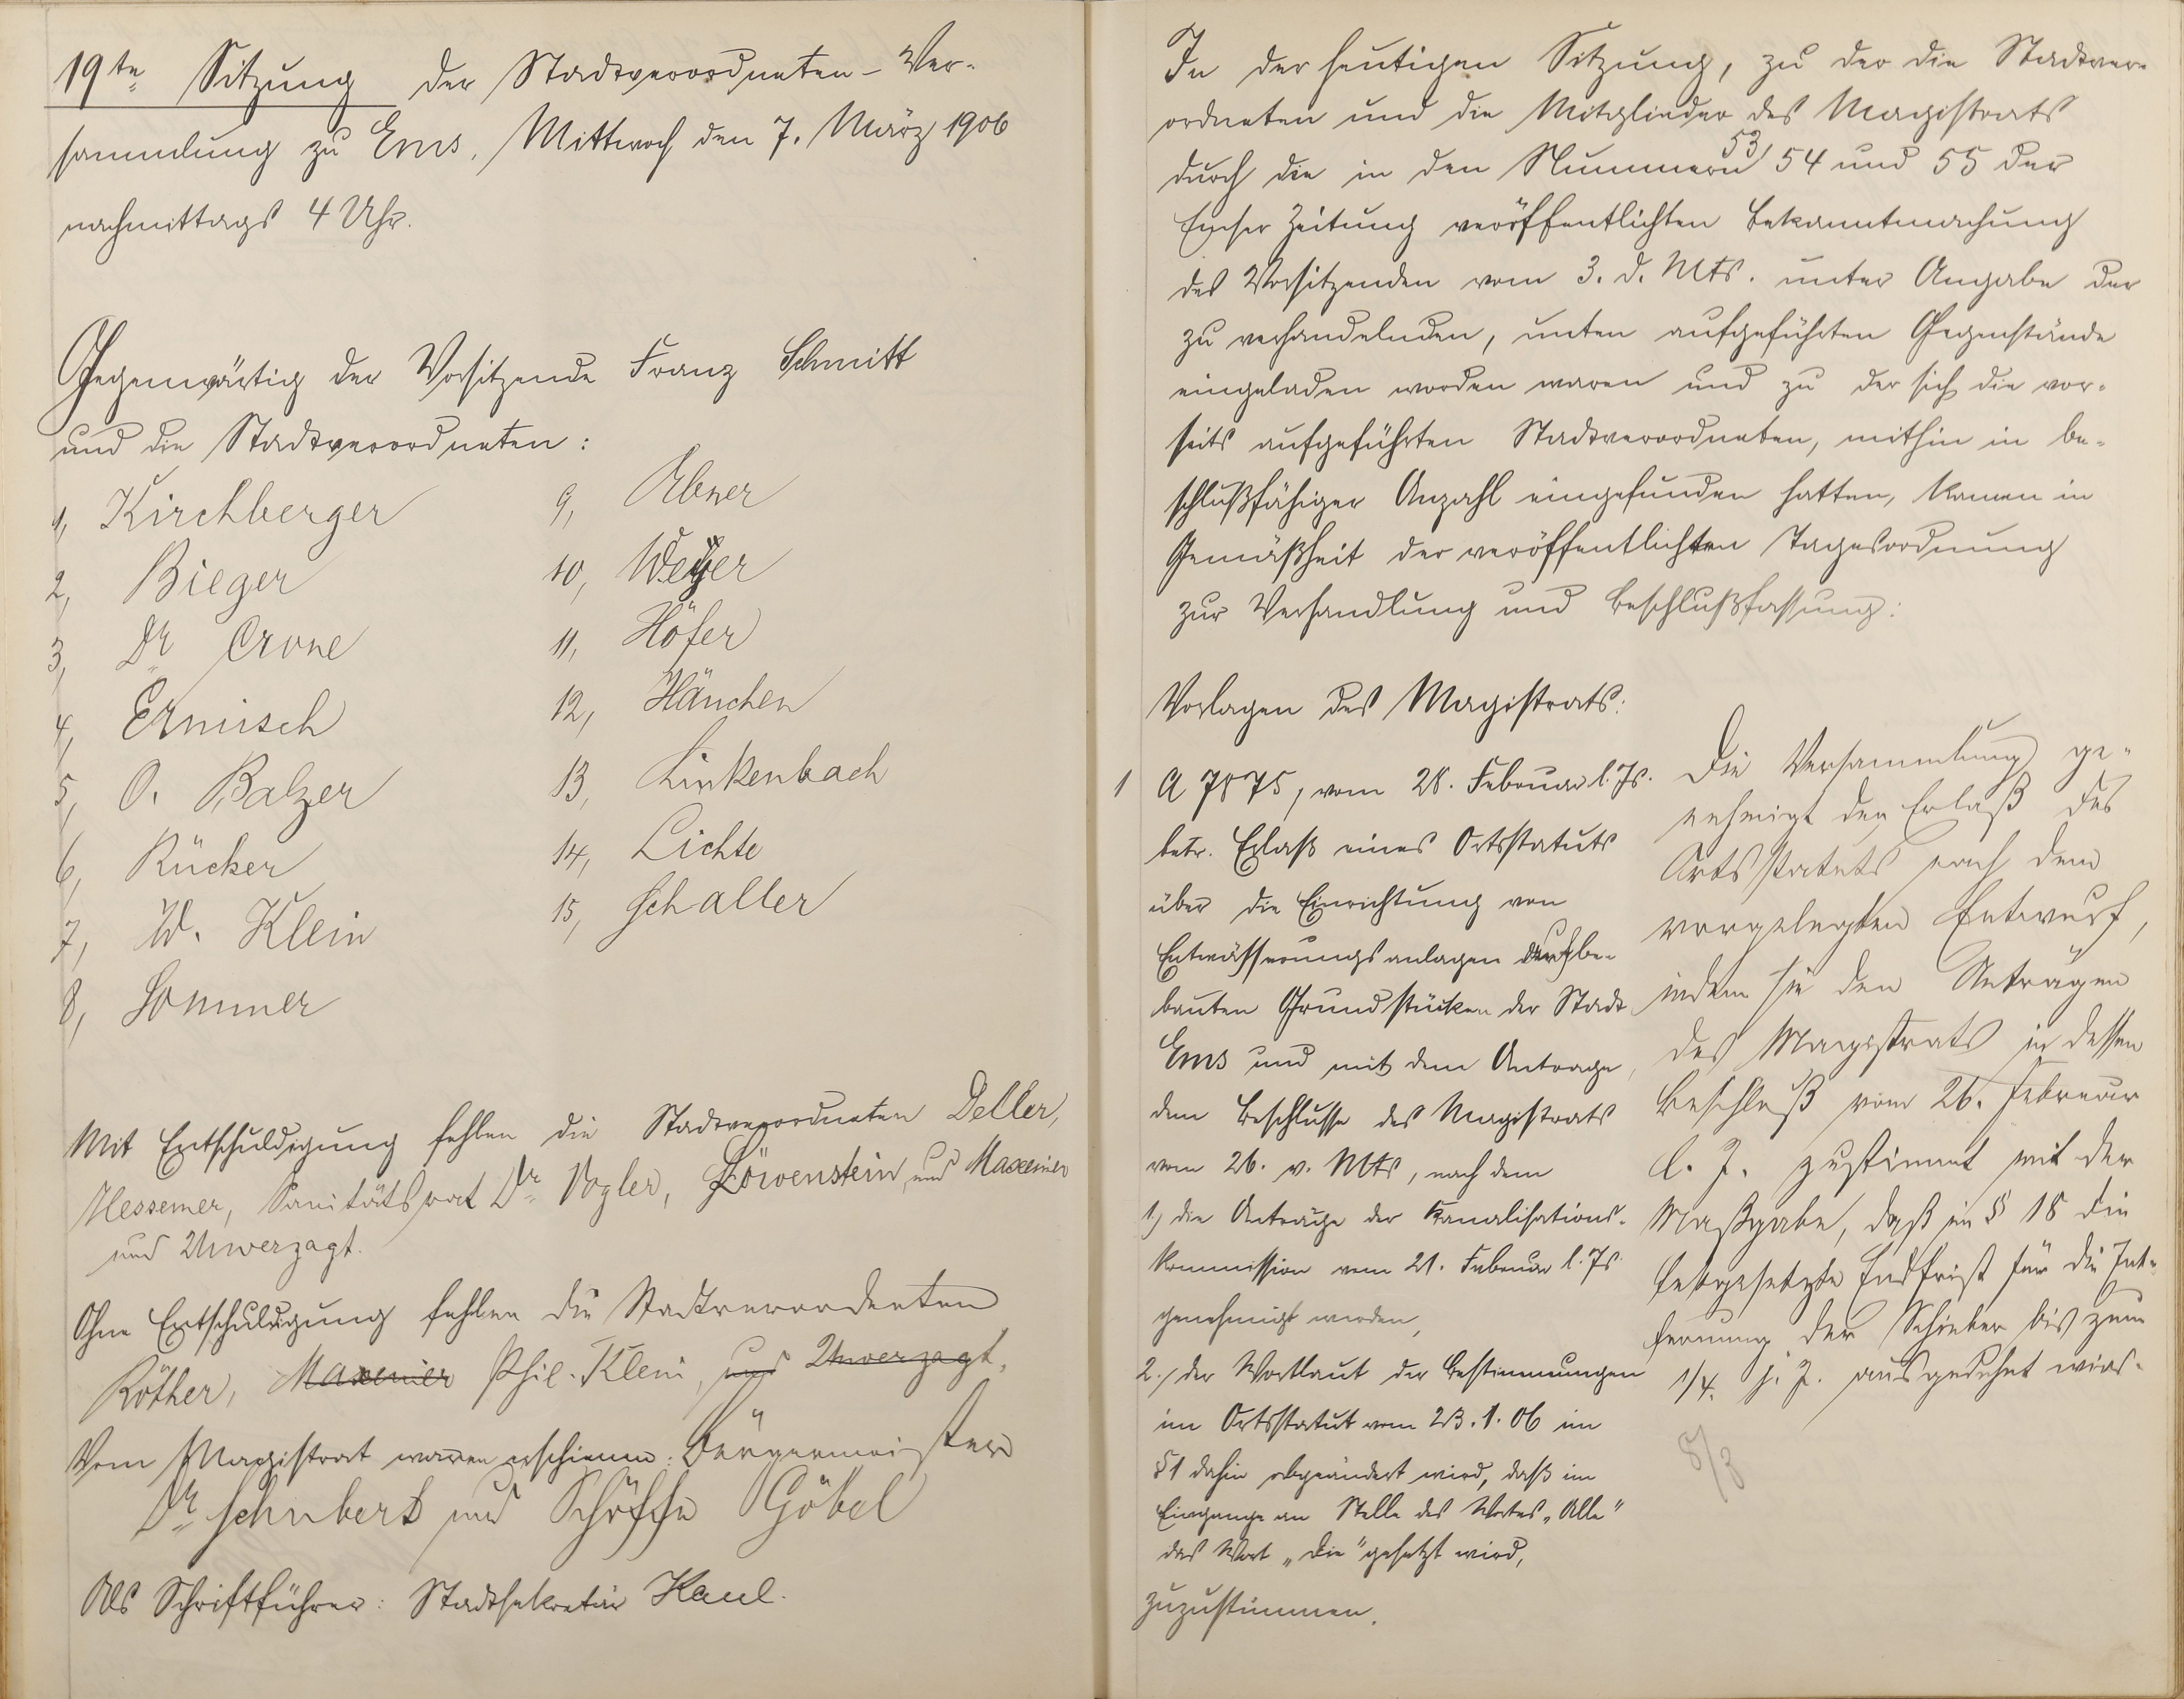 19te Sitzung der Stadtverordneten-Ver-
sammlung zu Ems, Mittwoch den 7. März 1906
nachmittags 4 Uhr.
Gegenwärtig der Vorsitzende Franz Schmitt
und die Stadtverordneten:
1, Kirchberger
2, Bieger
3, Dr Crone
4, Ermisch
5, O. Balzer
6, Rücker
7, W. Klein
8, Sommer
9, Ebner
10, Weyer
11, Höfer
12, Hänchen
13, Linkenbach
14, Lichte
15, Schaller
Mit Entschuldigung fehlen die Stadtverordneten Deller,
Hessemer, Sanitätsrat Dr Vogler, Löwenstein, und Maxeiner
und Unverzagt.
Ohne Entschuldigung fehlen die Stadtverordneten
Röther, Maxeiner Phil. Klein, und Unverzagt.
Vom Magistrat waren erschienen: Bürgermeister
Dr Schubert und Schöffe Göbel
Als Schriftführer: Stadtsekretär Kaul.
In der heutigen Sitzung, zu der die Stadtver-
ordneten und die Mitglieder des Magistrats
durch die in den Nummern 53, 54 und 55 der
Emser Zeitung veröffentlichten Bekanntmachung
des Vorsitzenden vom 3. d. Mts. unter Angabe der
zu verhandelnden, unten aufgeführten Gegenstände
eingeladen worden waren und zu der sich die vor-
seits aufgeführten Stadtverordneten, mithin in be-
schlußfähiger Anzahl eingefunden hatten, kamen in
Gemäßheit der veröffentlichten Tagesordnung
zur Verhandlung und Beschlußfassung:
Vorlagen des Magistrats:
1 A 7875, vom 28. Februar l. Js.
betr. Erlaß eines Ortsstatuts
über die Einrichtung von
Entwässerungsanlagen be-
bauten Grundstücken der Stadt
Ems und mit dem Antrage,
dem Beschlusse des Magistrats
vom 26. v. Mts, nach dem
1) die Anträge der Kanalisations-
kommission vom 21. Februar l. Js
genehmigt werden,
2./ der Wortlaut der Bestimmungen
im Ortsstatut vom 23. 1. 06 im
§ 1 dahin abgeändert wird, daß im
Eingange an Stelle des Wortes „Alle"
das Wort „die" gesetzt wird,
zuzustimmen.
Die Versammlung ge-
nehmigt den Erlaß des
Ortsstatuts nach dem
vorgelegten Entwurf,
indem sie den Anträgen
des Magistrats in dessen
Beschluß vom 26. Februar
l. J. zustimmt mit der
Maßgabe, daß in § 18 die
festgesetzte Endfrist für die Ent-
fernung der Schieber bis zum
1/4. J. ausgedehnt wird.
8/3